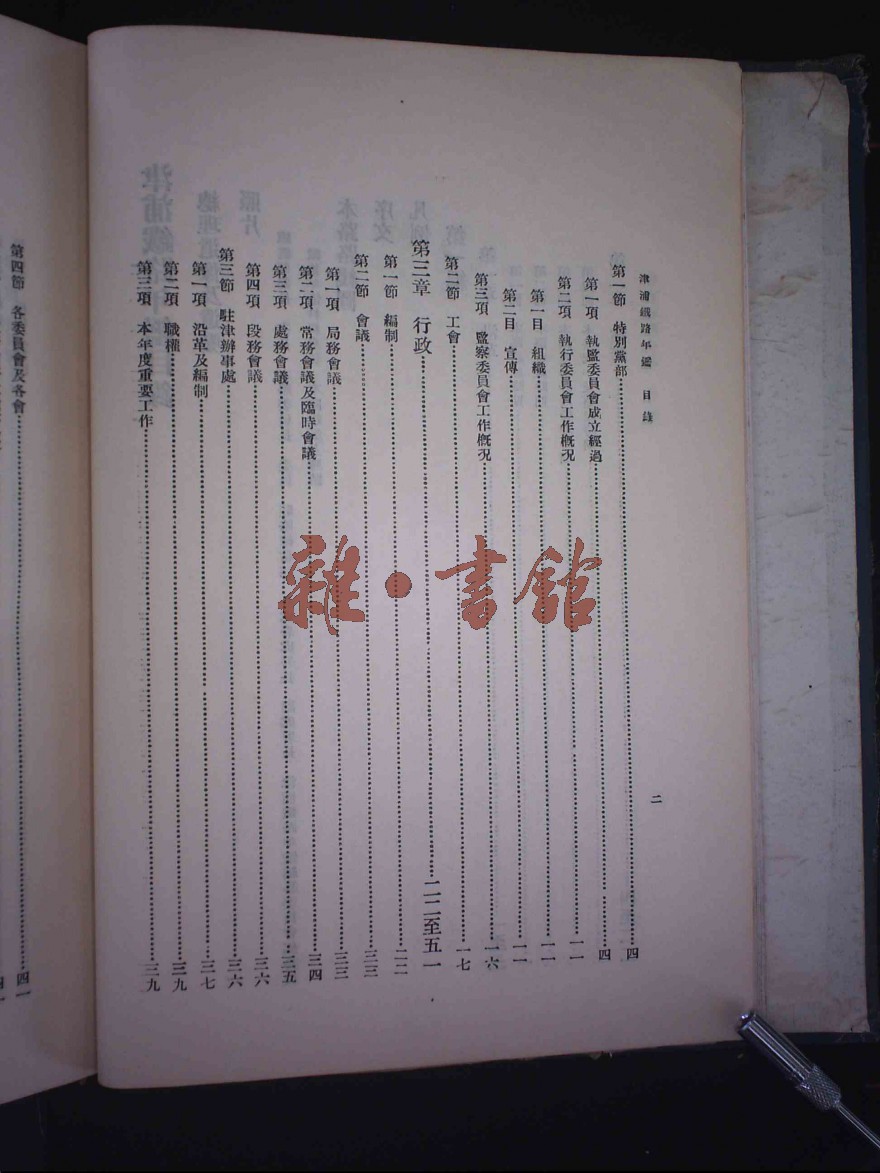 津浦鐵路年鑑 目錄
二
第一節 特別黨部 四
第一項 執監委員會成立經過 四
第二項 執行委員會工作概況 一一
第一目 組織 一一
第二目 宣傳 一一
第三項 監察委員會工作概況 一六
第二節 工會 一七
第三章 行政 二二至五一
第一節 編制 二二
第二節 會議 三三
第一項 局務會議 三三
第二項 常務會議及臨時會議 三四
第三項 處務會議 三五
第四項 段務會議 三六
第三節 駐津辦事處 三六
第一項 沿革及編制 三七
第二項 職權 三九
第三項 本年度重要工作 三九
第四節 各委員會及各會 四一
雜·書館